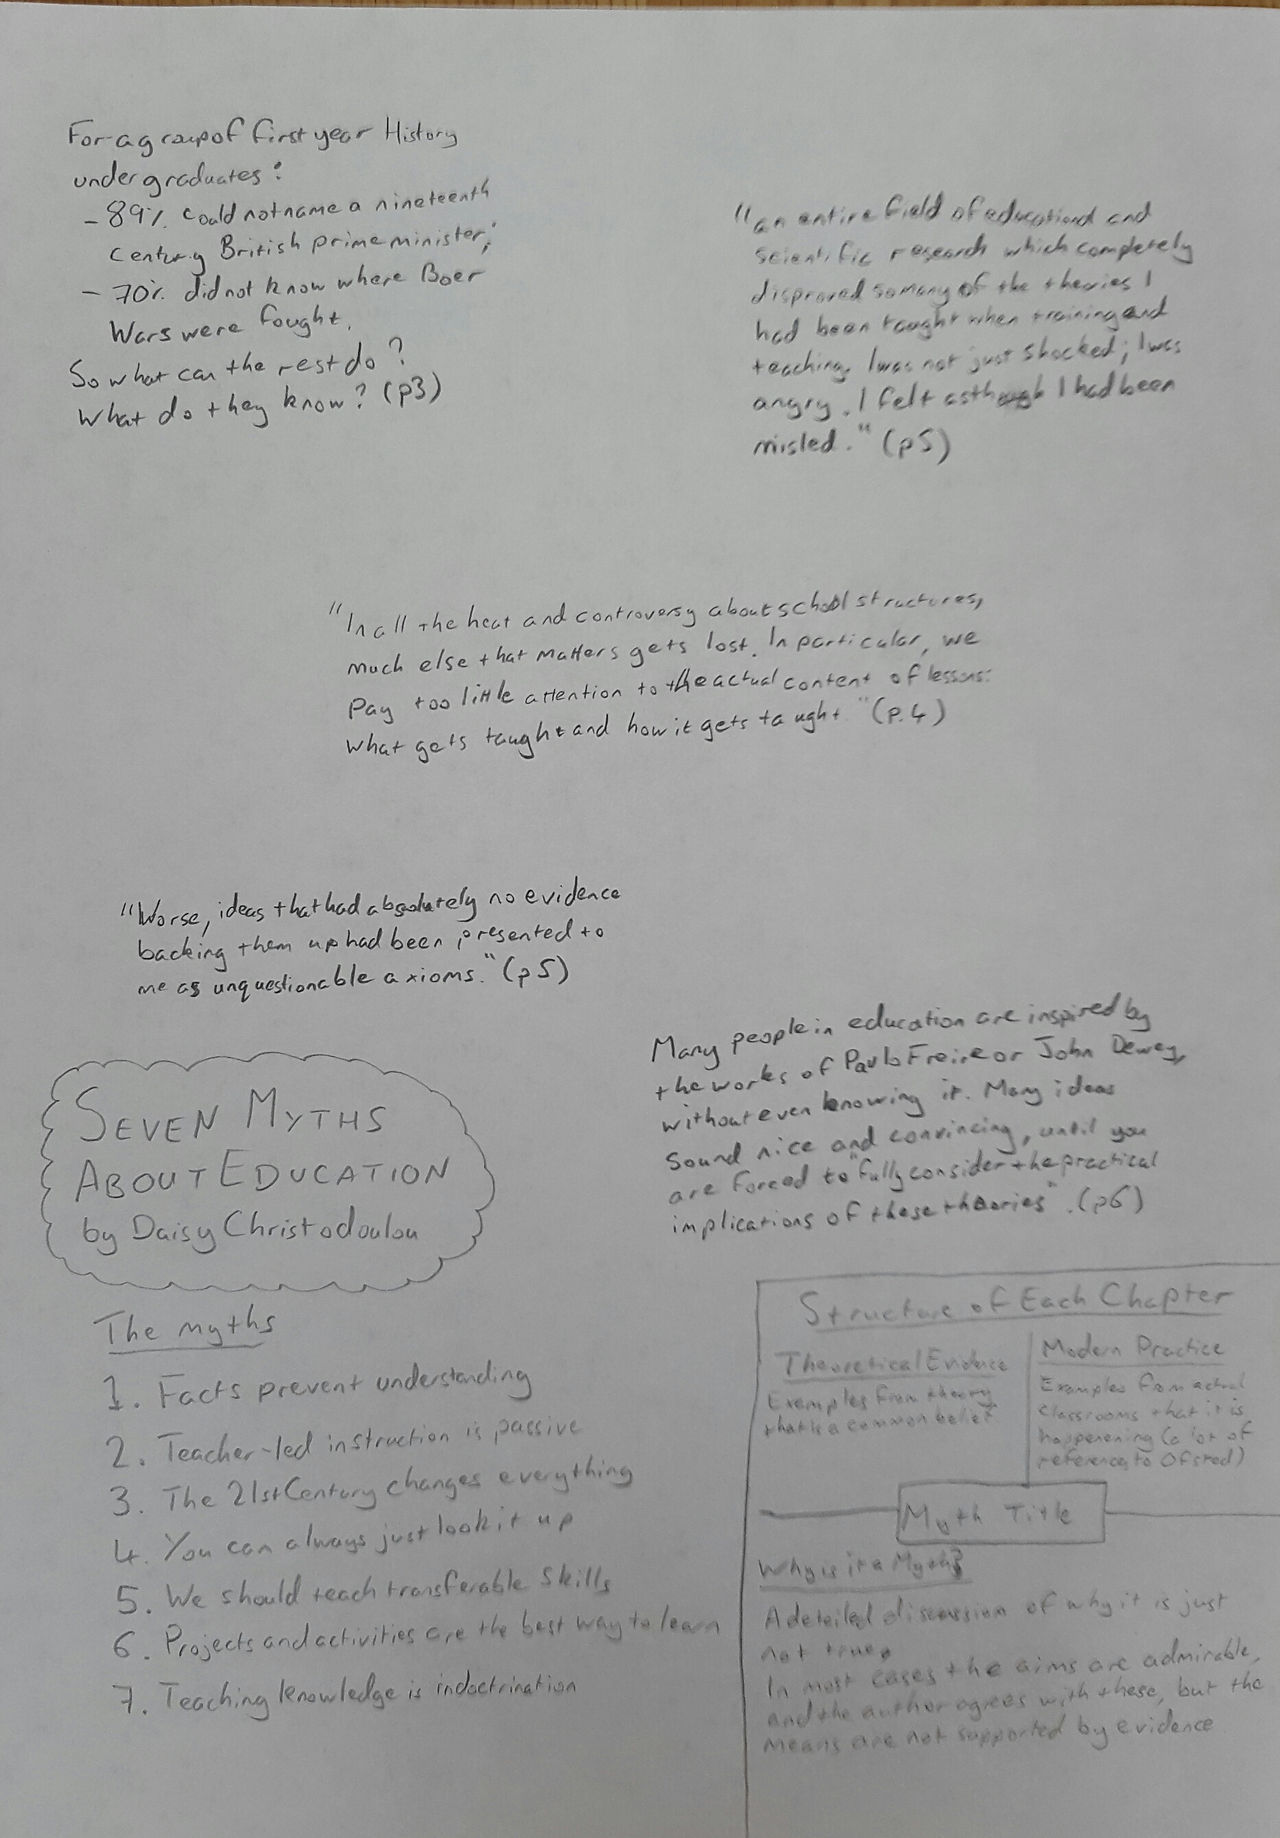 For a group of first year History
undergraduates:
- 89% could not name a nineteenth
century British prime minister;
- 70% did not know where Boer
Wars were fought.
So what can the rest do?
What do they know? (p3)
"an entire field of educational and
scientific research which completely
disproved so many of the theories I
had been taught when training and
teaching. I was not just shocked; I was
angry. I felt as though I had been
misled." (p5)
"In all the heat and controversy about school structures,
much else that matters gets lost. In particular, we
pay too little attention to the actual content of lessons:
what gets taught and how it gets taught." (p.4)
"Worse, ideas that had absolutely no evidence
backing them up had been presented to
me as unquestionable axioms." (p5)
Many people in education are inspired by
the works of Paulo Freire or John Dewey,
without even knowing it. Many ideas
sound nice and convincing, until you
are forced to "fully consider the practical
implications of these theories". (p6)
SEVEN MYTHS
ABOUT EDUCATION
by Daisy Christodoulou
The myths
1. Facts prevent understanding
2. Teacher-led instruction is passive
3. The 21st Century changes everything
4. You can always just look it up
5. We should teach transferable skills
6. Projects and activities are the best way to learn
7. Teaching knowledge is indoctrination
Structure of Each Chapter
Theoretical Evidence
Examples from theory
that is a common belief
Modern Practice
Examples from actual
classrooms that it is
happenening (a lot of
references to Ofsted)
Myth Title
Why is it a Myth?
A detailed discussion of why it is just
not true.
In most cases the aims are admirable,
and the author agrees with these, but the
means are not supported by evidence